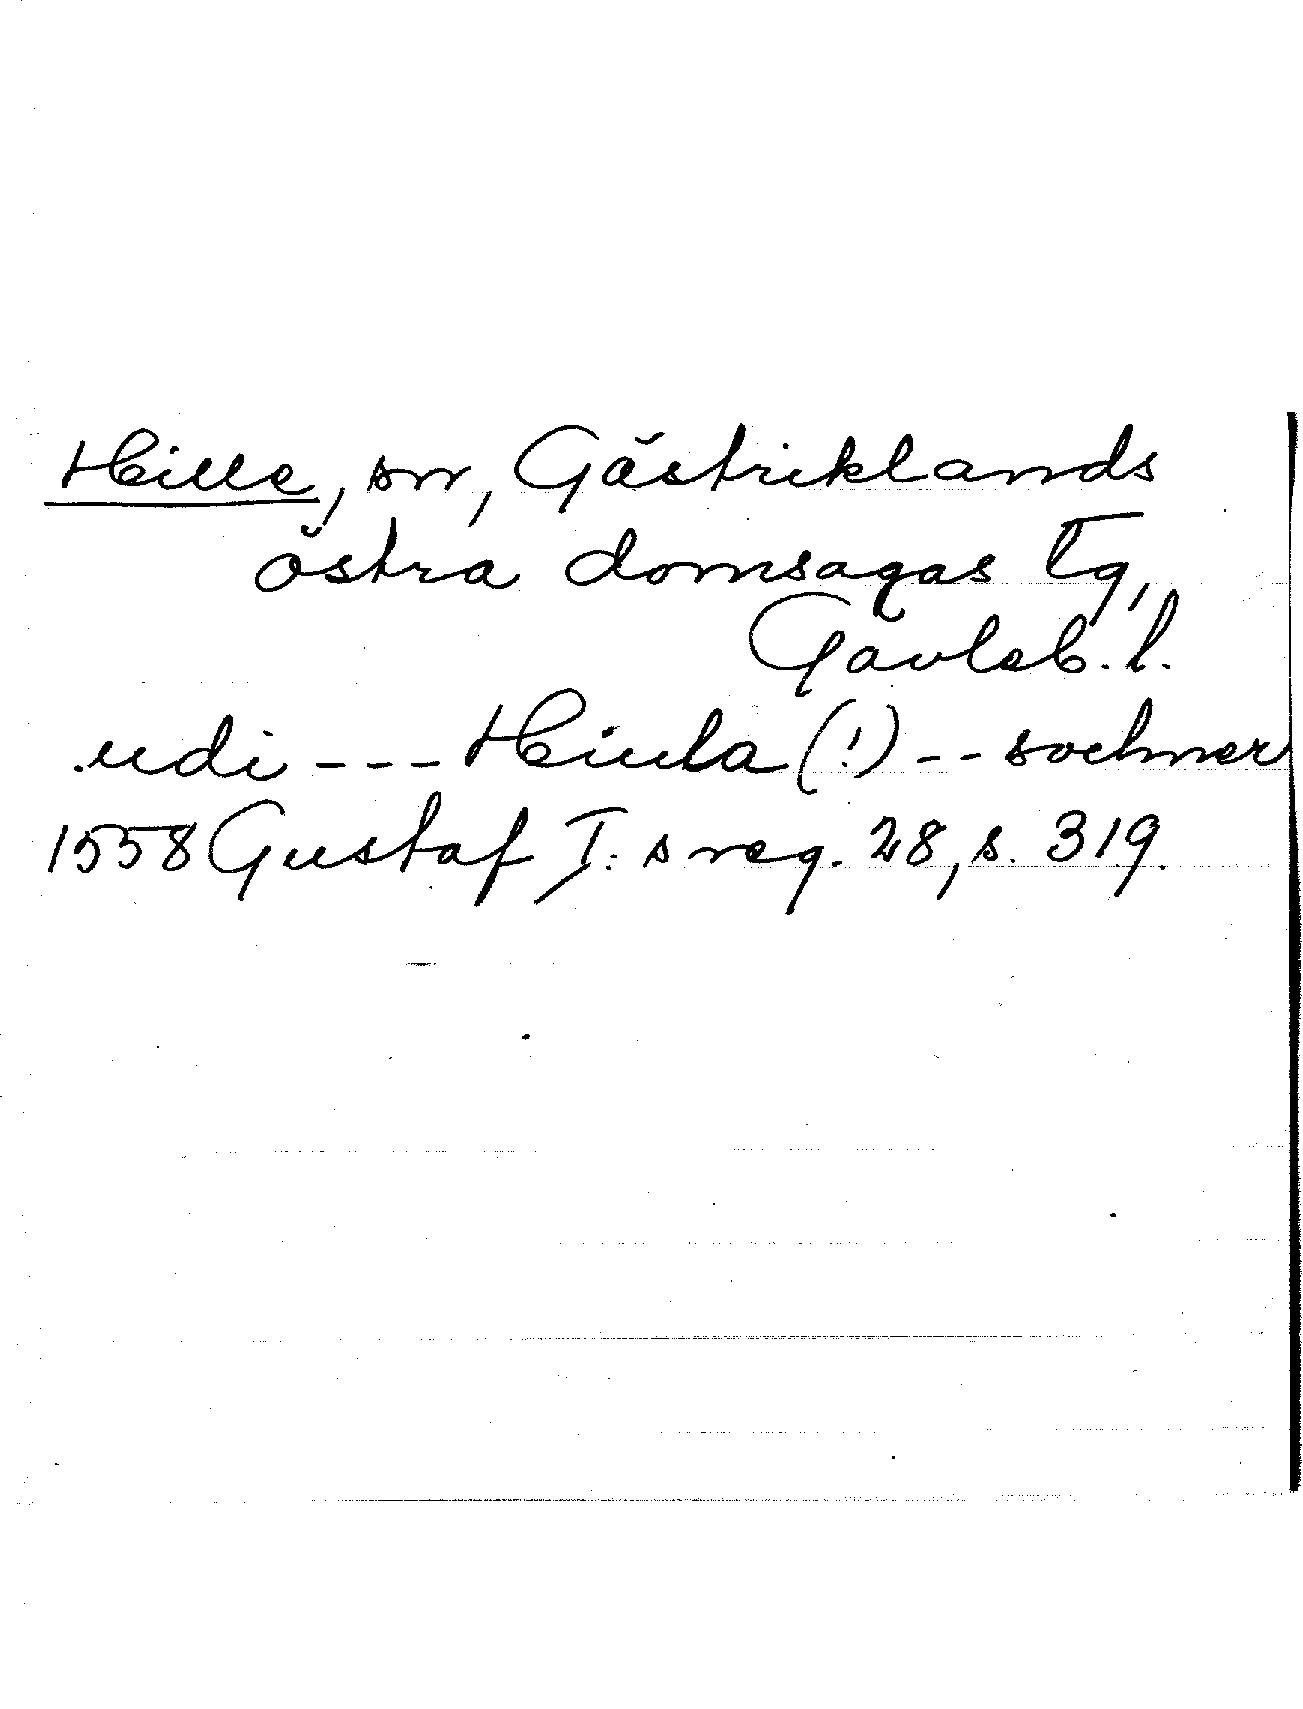 Hille, sn, Gästriklands
östra domsagas tg,
Gävleb. l.
udi --- Hiula (!) -- sochner
1558 Gustaf I:s reg. 28, s. 319.